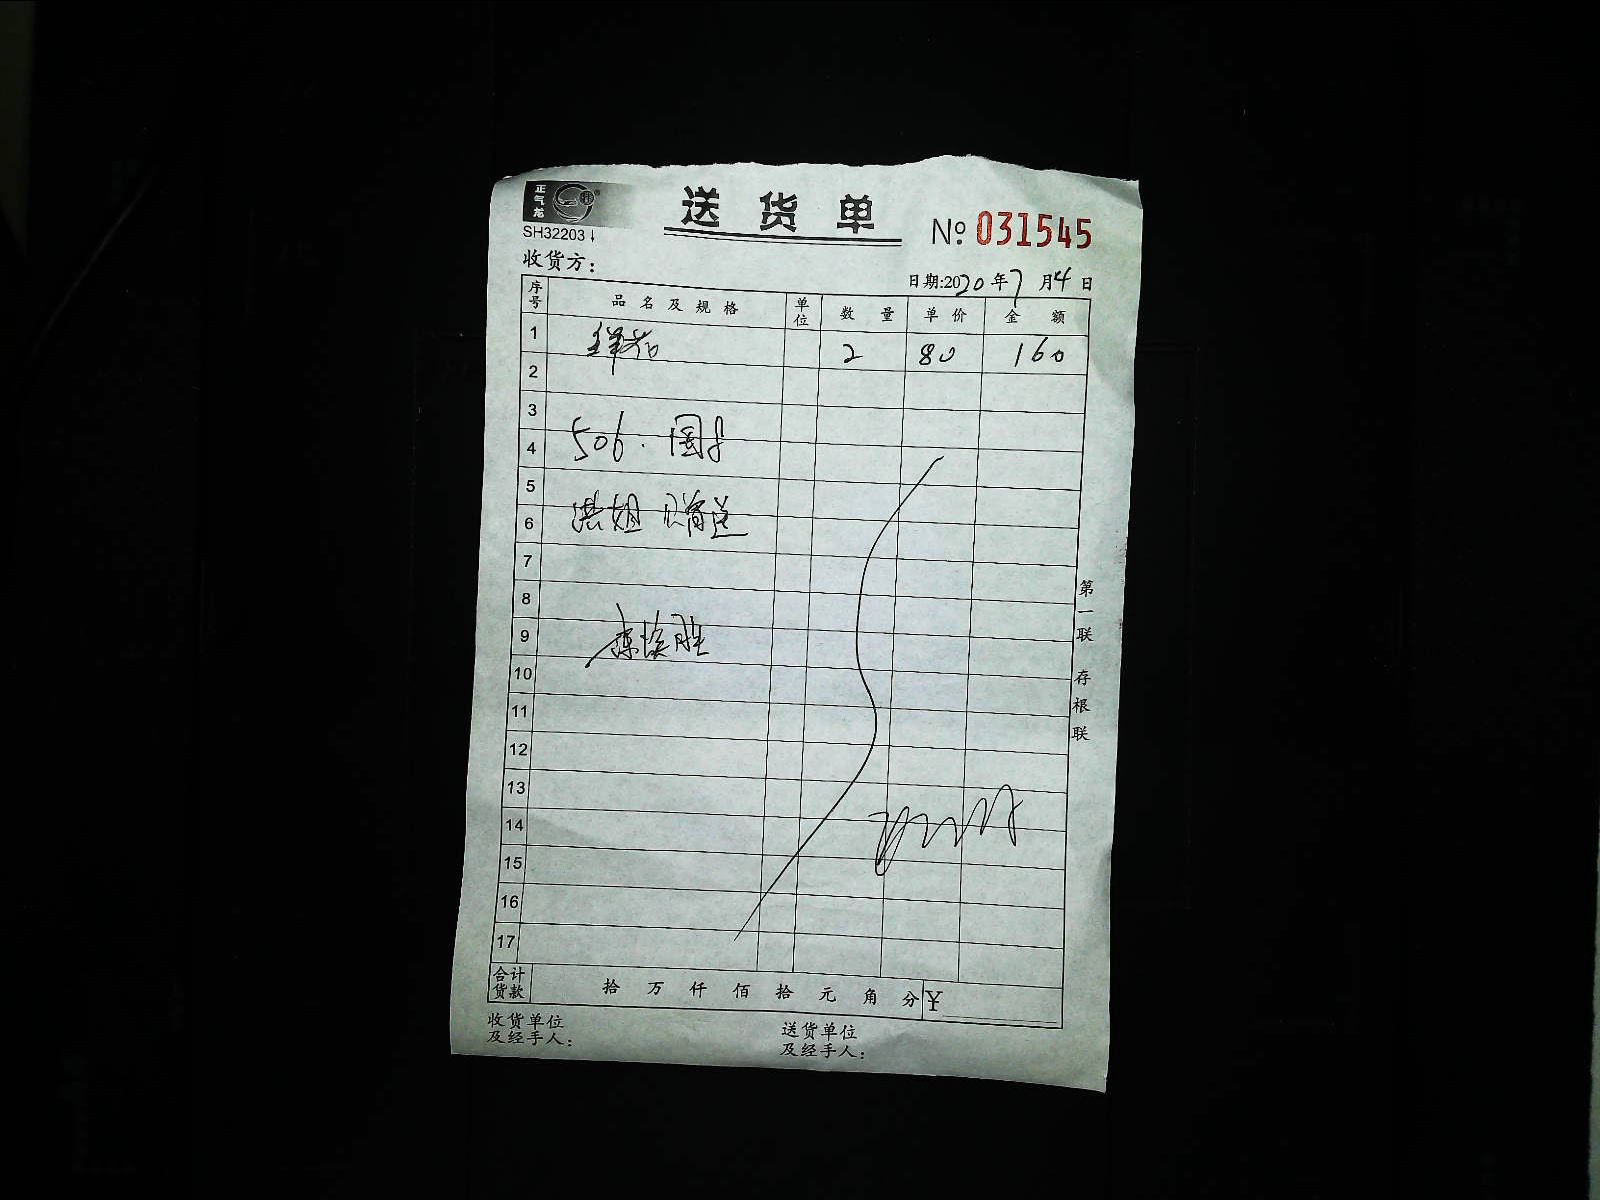 正气龙
SH32203
送货单
№ 031545
收货方：
日期:2020年7月4日
序号 品名及规格 单位 数量 单价 金额
1 2 80 160
2
3
4 506.
5
6 洪姐
7
8
9
10
11
12
13
14
15
16
17
合计货款 拾 万 仟 佰 拾 元 角 分 ¥
收货单位及经手人：
送货单位及经手人：
第一联 存根联